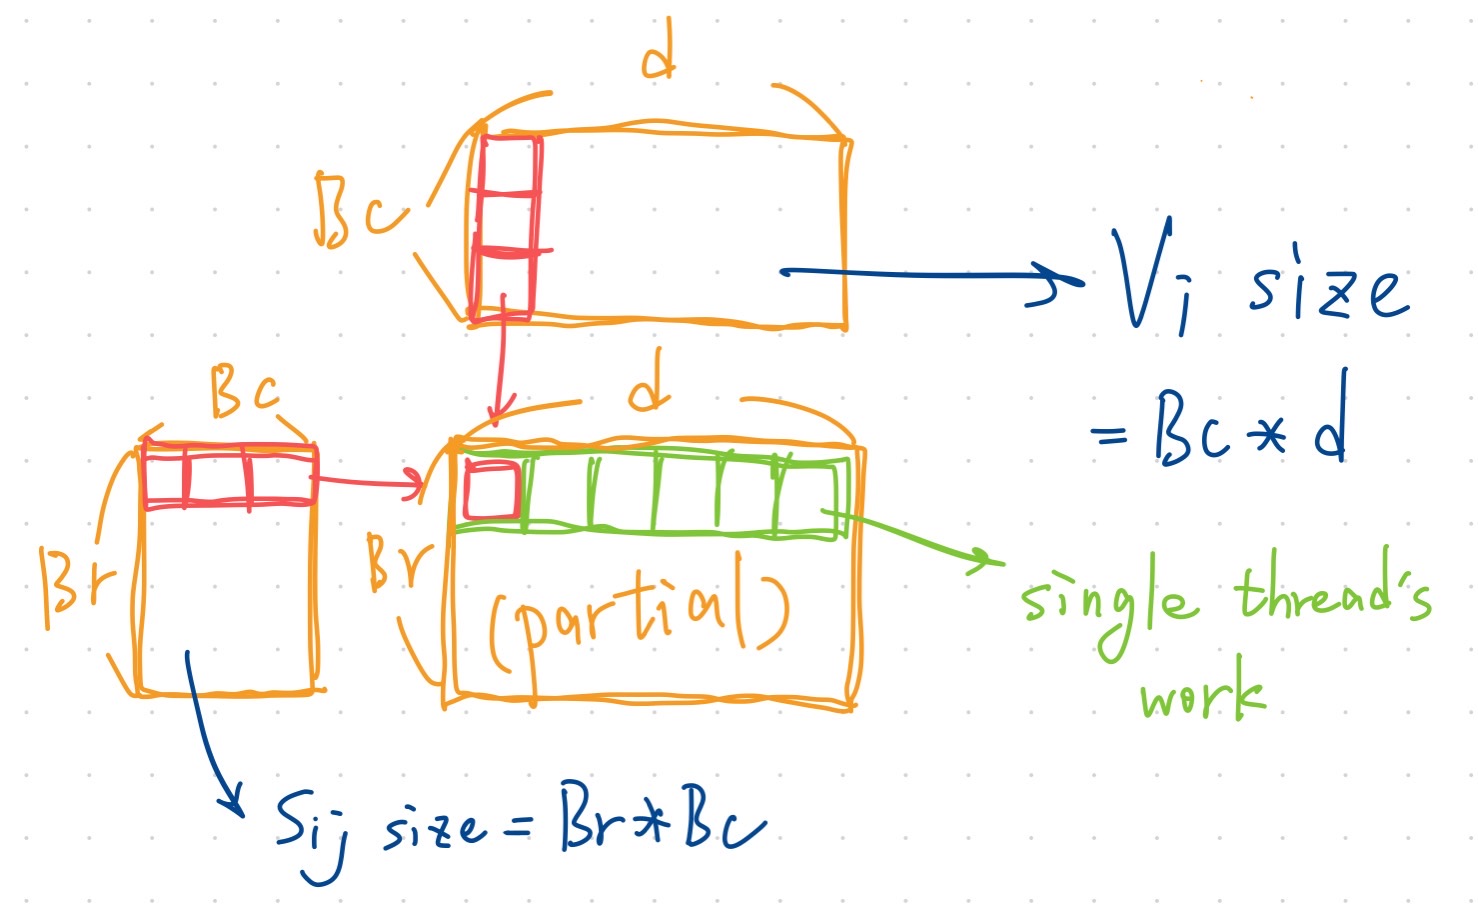 d
Bc
Vj size
= Bc * d
Bc
d
Br
Br
(partial)
single thread's
work
Sij size = Br * Bc